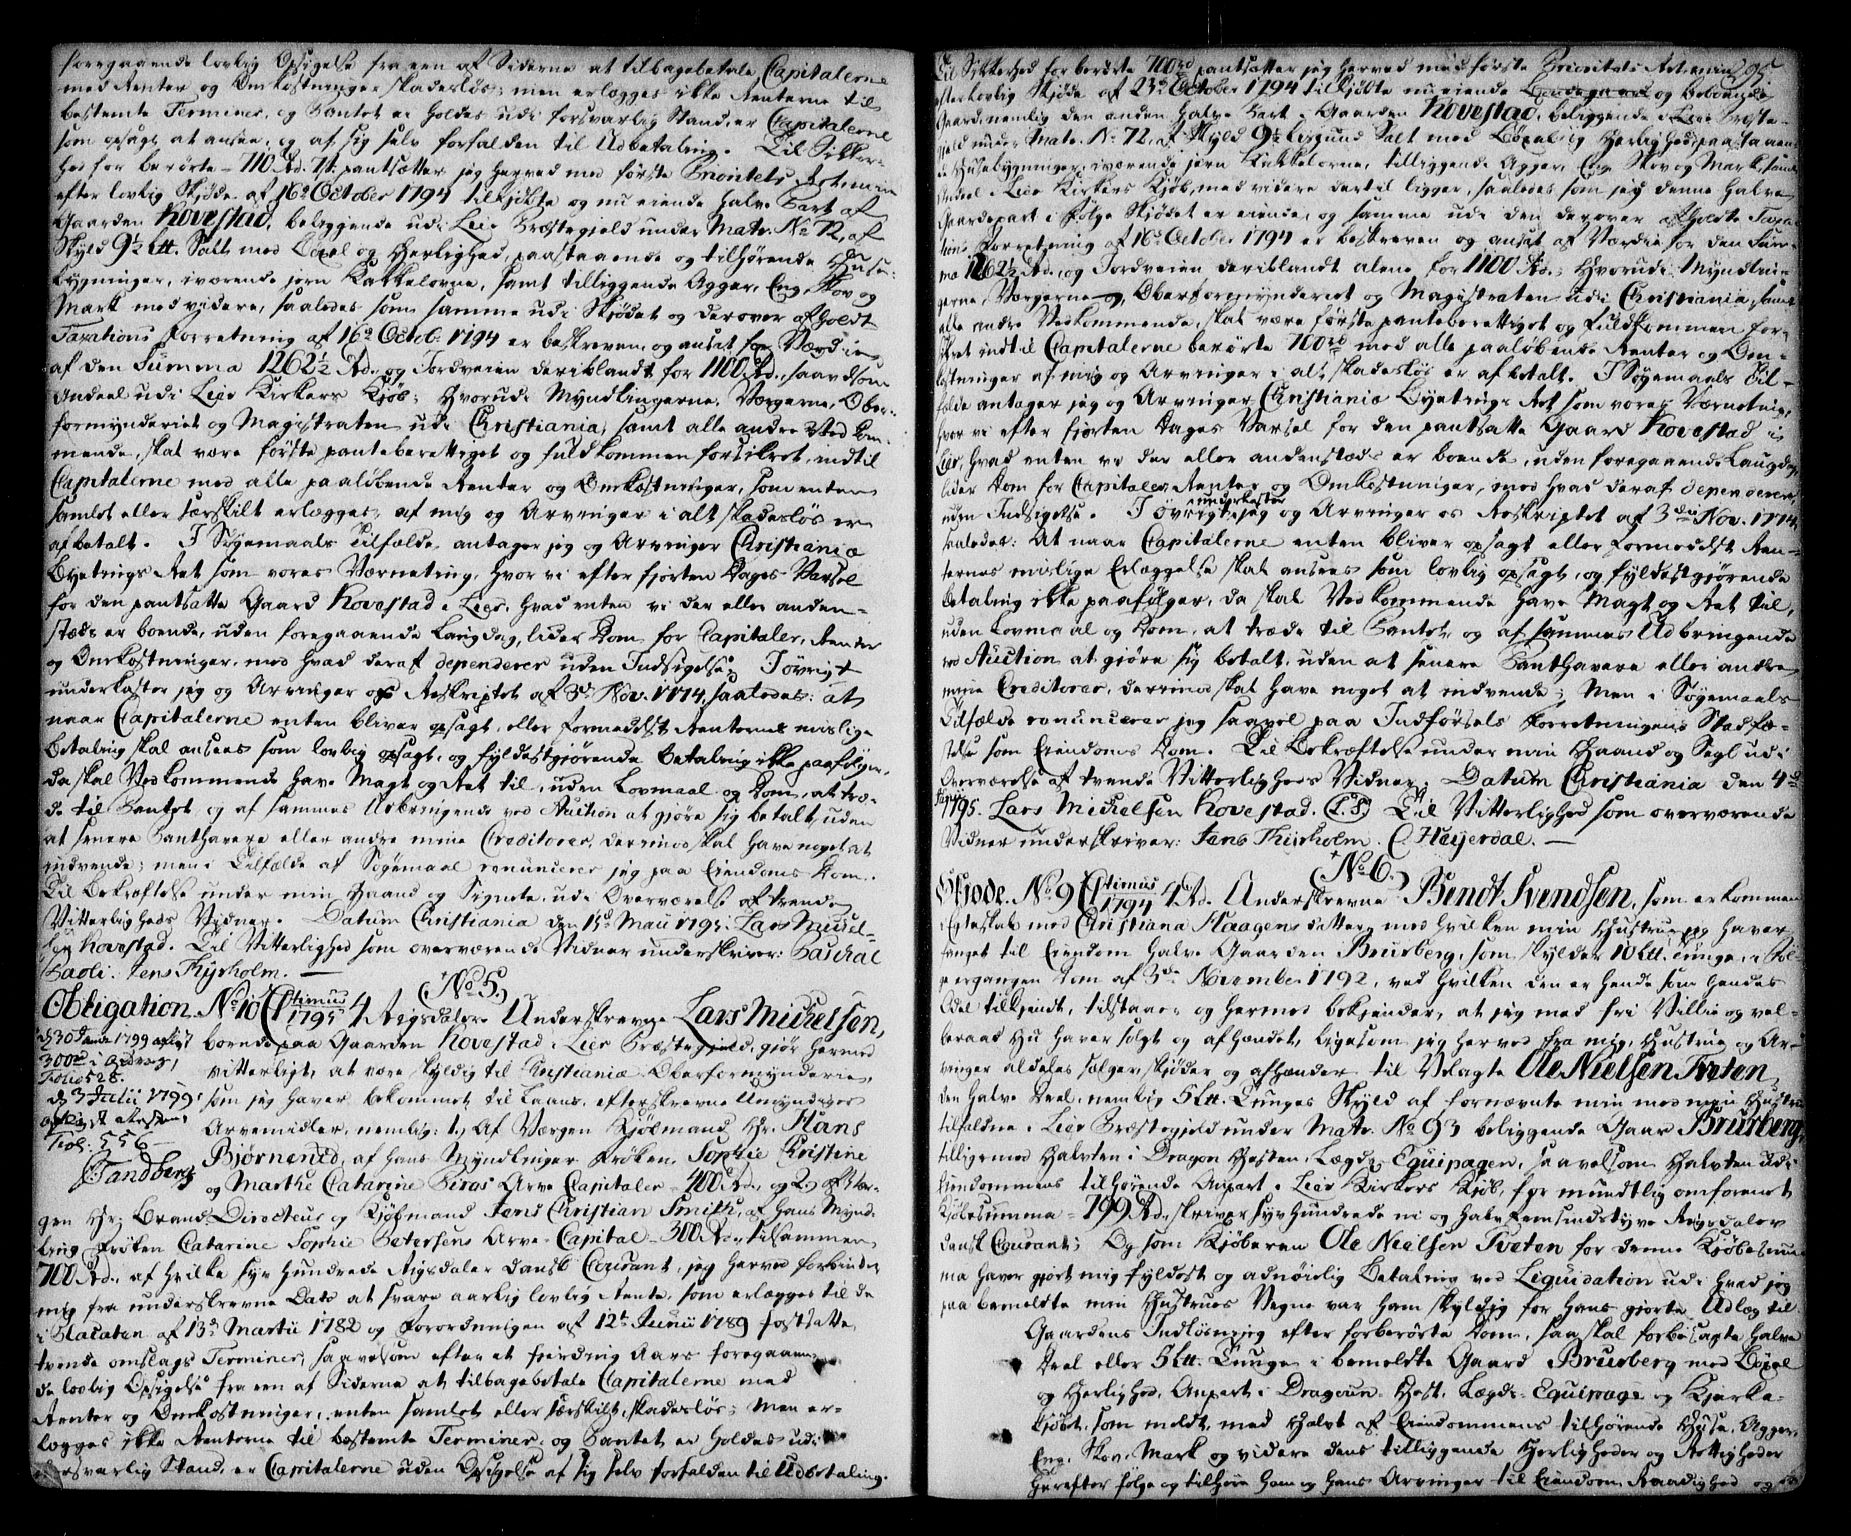 foregaaende lovlig Opsigelse fra een af Siderne at tilbagebetale Capitalerne
med Renter og Omkostninger skadesløs; men erlægges ikke Renterne til
bestemte Terminer, og Pantet er holdes udi forsvarlig Stand, er Capitalerne
som opsagt at ansee, og af sig selv forfalden til Udbetaling. Til Sikker-
hed for berørte 710 Rd. pantsætter jeg herved med første Prioritets Ret min
efter lovlig Skjøde af 16de October 1794 tilkjøbte og nu eiende halve Part af
Gaarden Kovestad, beliggende udi Lier Præstegield under Matr. No 72, af
Skyld 9½ Ltt. Salt med Bøxel og Herlighed, paastaaende og tilhørende Huse-
bygninger, iværende jern Kakkelovne, samt tilliggende Agger, Eng, Skov og
Mark med videre, saaledes som samme udi Skjødet og derover afholdt
Taxations Forretning af 16de Octob. 1794 er beskreven, og ansat for Værdie
af den Summa 1262½ Rd. og Jordveien deriblandt for 1100 Rd., saavelsom
Andeel udi Lier Kirkers Kjøb; Hvorudi Myndlingerne, Værgerne, Ober-
formynderiet og Magistraten udi Christiania, samt alle andre Vedkom-
mende, skal være første panteberettiget og fuldkommen forsikret, indtil
Capitalerne med alle paaløbende Renter og Omkostninger, som enten
samlet eller særskilt erlægges, af mig og Arvinger i alt skadesløs er
afbetalt. I Søgemaals Tilfælde, antager jeg og Arvinger Christiania
Byetings Ret som vores Værneting, hvor vi efter fjorten Dages Varsel
for den pantsatte Gaard Kovestad i Lier, hvad enten vi der eller anden-
stæds er boende, uden foregaaende Laugdag, lider Dom for Capitaler, Renter
og Omkostninger, med hvad deraf dependerer uden Indsigelse. I øvrigt
underkaster jeg og Arvinger os Rescriptet af 3de Nov. 1774, saaledes: at
naar Capitalerne enten bliver opsagt, eller formedelst Renternes mislige
Betaling skal ansees som lovlig opsagt, og fyldestgjørende Betaling ikke paafølger,
da skal Vedkommende have Magt og Ret til, uden Lovmaal og Dom, at træ-
de til Pantet og af sammes Udbringende ved Auction at gjøre sig betalt, uden
at senere Panthavere eller andre mine Creditorer, derimod skal have noget at
indvende; men i Tilfælde af Søgemaal renuncierer jeg paa Eiendoms Dom.
Til Bekræftelse under min Haand og Signete, udi Overværelse af tvende
Vitterligheds Vidner. Datum Christiania den 15de Maii 1795. Lars Mickel-
sen Kovestad. Til Vitterlighed som overværende Vidner underskriver: Paschal
Paoli. Jens Thyrholm.
(No 5.)
Obligation. No 10 Ctimus 1795 4 Rigsdaler. Underskrevne Lars Mickelsen,
d. 30 Janu. 1799 aflyst
300 rd
Folio 528.
d. 3 Julii 1799
aflyst
Fol. 556
Sandberg
boende paa Gaarden Kovestad i Lier Præstegield, gjør hermed
vitterligt, at være skyldig til Christiania Oberformynderie,
som jeg haver bekommet til Laans, efterskrevne Umyndiges
Arvemidler, nemlig: 1, Af Værgen Kjøbmand Hr. Hans
Bjørnened, af hans Myndlinger Frøken Sophie Christine
og Marthe Catarine Arve Capitaler 400 Rd., og 2, af Vær-
gen Hr. Brand-Directeur og Kjøbmand Jens Christian Smith, af hans Mynd-
ling Frøken Catarine Sophie Petersens Arve-Capital 300 Rd., tilsammen
700 Rd., af hvilke syv hundrede Rigsdaler Dansk Courant, jeg herved forbinder
mig fra underskrevne Dato at svare aarlig lovlig Rente, som erlægges til de
i Placaten af 13de Martii 1782 og Forordningen af 12te Junii 1789 fastsatte
tvende omslags Terminer, saavelsom efter et fierding Aars foregaaen-
de lovlig Opsigelse fra een af Siderne at tilbagebetale Capitalerne med
Renter og Omkostninger, enten samlet eller særskilt, skadesløs; Men er-
lægges ikke Renterne til bestemte Terminer, og Pantet er holdes udi
forsvarlig Stand, er Capitalerne uden Opsigelse af sig selv forfalden til Udbetaling.
95.
Til Sikkerhed for berørte 700 rd pantsætter jeg herved med første Prioritets Ret min
efter lovlig Skjøde af 23de October 1794 tilkjøbte nu eiende og beboende
Gaard, nemlig den anden halve Part i Gaarden Kovestad, beliggende i Lier Præste-
gield under Matr. No 72, af Skyld 9½ Lispund Salt med Bøxel og Herlighed, paastaaen-
de Husebygninger, iværende jern Kakkelovne, tilliggende Agger, Eng, Skov og Mark, samt
Andeel i Lier Kirkers Kjøb, med videre dertil ligger, saaledes som jeg denne halve
Gaardepart i Følge Skjødet er eiende, og samme udi den derover afholdte Taxa-
tions Forretning af 16de October 1794 er beskreven og ansat af Værdie for den Sum-
ma 1262½ Rd., og Jordveien deriblandt alene for 1100 Rd.; Hvorudi Myndlin-
gerne, Værgerne, Oberformynderiet og Magistraten udi Christiania, samt
alle andre Vedkommende, skal være første panteberettiget og fuldkommen for-
sikret indtil Capitalerne berørte 700 rd med alle paaløbende Renter og Om-
kostninger af mig og Arvinger i alt skadesløs er afbetalt. I Søgemaals Til-
fælde antager jeg og Arvinger Christiania Byetings Ret som vores Værneting,
hvor vi efter fjorten Dages Varsel for den pantsatte Gaard Kovestad i
Lier, hvad enten vi der eller andenstæds er boende, uden foregaaende Laugdag,
lider Dom for Capitaler, Renter og Omkostninger, med hvad deraf dependerer
uden Indsigelse. I øvrigt underkaster jeg og Arvinger os Reskriptet af 3die Nov. 1774,
saaledes: At naar Capitalerne enten bliver opsagt eller formedelst Ren-
ternes mislige Erlæggelse skal ansees som lovlig opsagt, og fyldestgjørende
Betaling ikke paafølger, da skal Vedkommende have Magt og Ret til,
uden Lovmaal og Dom, at træde til Pantet, og af sammes Udbringende
ved Auction at gjøre sig betalt, uden at senere Panthavere eller andre
mine Creditorer, derimod skal have noget at indvende; Men i Søgemaals
Tilfælde renuncierer jeg saavel paa Indførsels Forretningens Stadfæ-
stelse som Eiendoms Dom. Til Bekræftelse under min Haand og Segl udi
Overværelse af tvende Vitterligheds Vidner. Datum Christiania den 4de
1795. Lars Mickelsen Kovestad. (L. S.) Til Vitterlighed som overværende
Vidner underskriver: Jens Thyrholm. C Heyerdal.
(No 6.)
Skjøde. No 9 Ctimus 1794 4 Rd. Underskrevne Bendt Svendsen, som er kommen
i Egteskab med Christiana Haagensdatter, med hvilken min Hustrue jeg haver
faaet til Eiendom halve Gaarden Brusberg, som skylder 10 Ltt. Tunge, i Føl-
ge ergangen Dom af 3de November 1792, ved hvilken den er hende som hendes
Odel tilkjendt, tilstaar og hermed bekjender, at jeg med fri Villie og vel-
beraad Hu haver solgt og afhændet, ligesom jeg herved fra mig, Hustrue og Ar-
vinger aldeles sælger, skjøder og afhænder til Velagte Ole Nielsen Tveten
den halve Deel, nemlig 5 Ltt. Tunges Skyld af fornævnte min med min Hustrue
tilfaldne i Lier Præstegield under Matr. No 93 beliggende Gaar Brusberg,
tilligemed Halvten i Dragon Hesten, Lægds Equipagen, saavelsom Halvten udi
Eiendommens tilhørende Anpart i Lier Kirkers Kjøb, for mundtlig omforenet
Kjøbesumma 799 Rd., skriver syv Hundrede ni og halvfemsindstyve Rigsdaler
dansk Courant; Og som Kjøberen Ole Nielsen Tveten for denne Kjøbesum-
ma haver gjort mig fyldest og adnøielig Betaling ved Liquidation udi hvad jeg
paa bemeldte min Hustrues Vegne var ham skyldig for hans gjorte Udlæg til
Gaardens Indløsning efter forberørte Dom, saa skal forbesagte halve
Deel eller 5 Ltt. Tunge i bemeldte Gaard Brusberg med Bøxel
og Herlighed, Anpart i Dragoun-Hest, Lægds-Equipage og Kjerke-
kjøbet, som meldt, med Halvt af Eiendommens tilhørende Huse, Agger,
Eng, Skov, Mark og videre dens tilliggende Herligheder og Rettigheder
herefter følge og tilhøre ham og hans Arvinger til Eiendom, Raadighed og